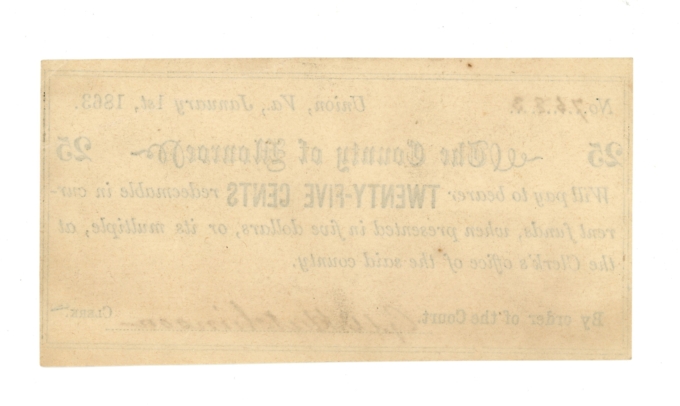 No. 7422. Union, Va., January 1st, 1863.
25 The County of Monroe 25
Will pay to bearer TWENTY-FIVE CENTS redeemable in cur-
rent funds, when presented in five dollars, or its multiple, at
the Clerk's office of the said county.
By order of the Court. Hutchinson CLERK.